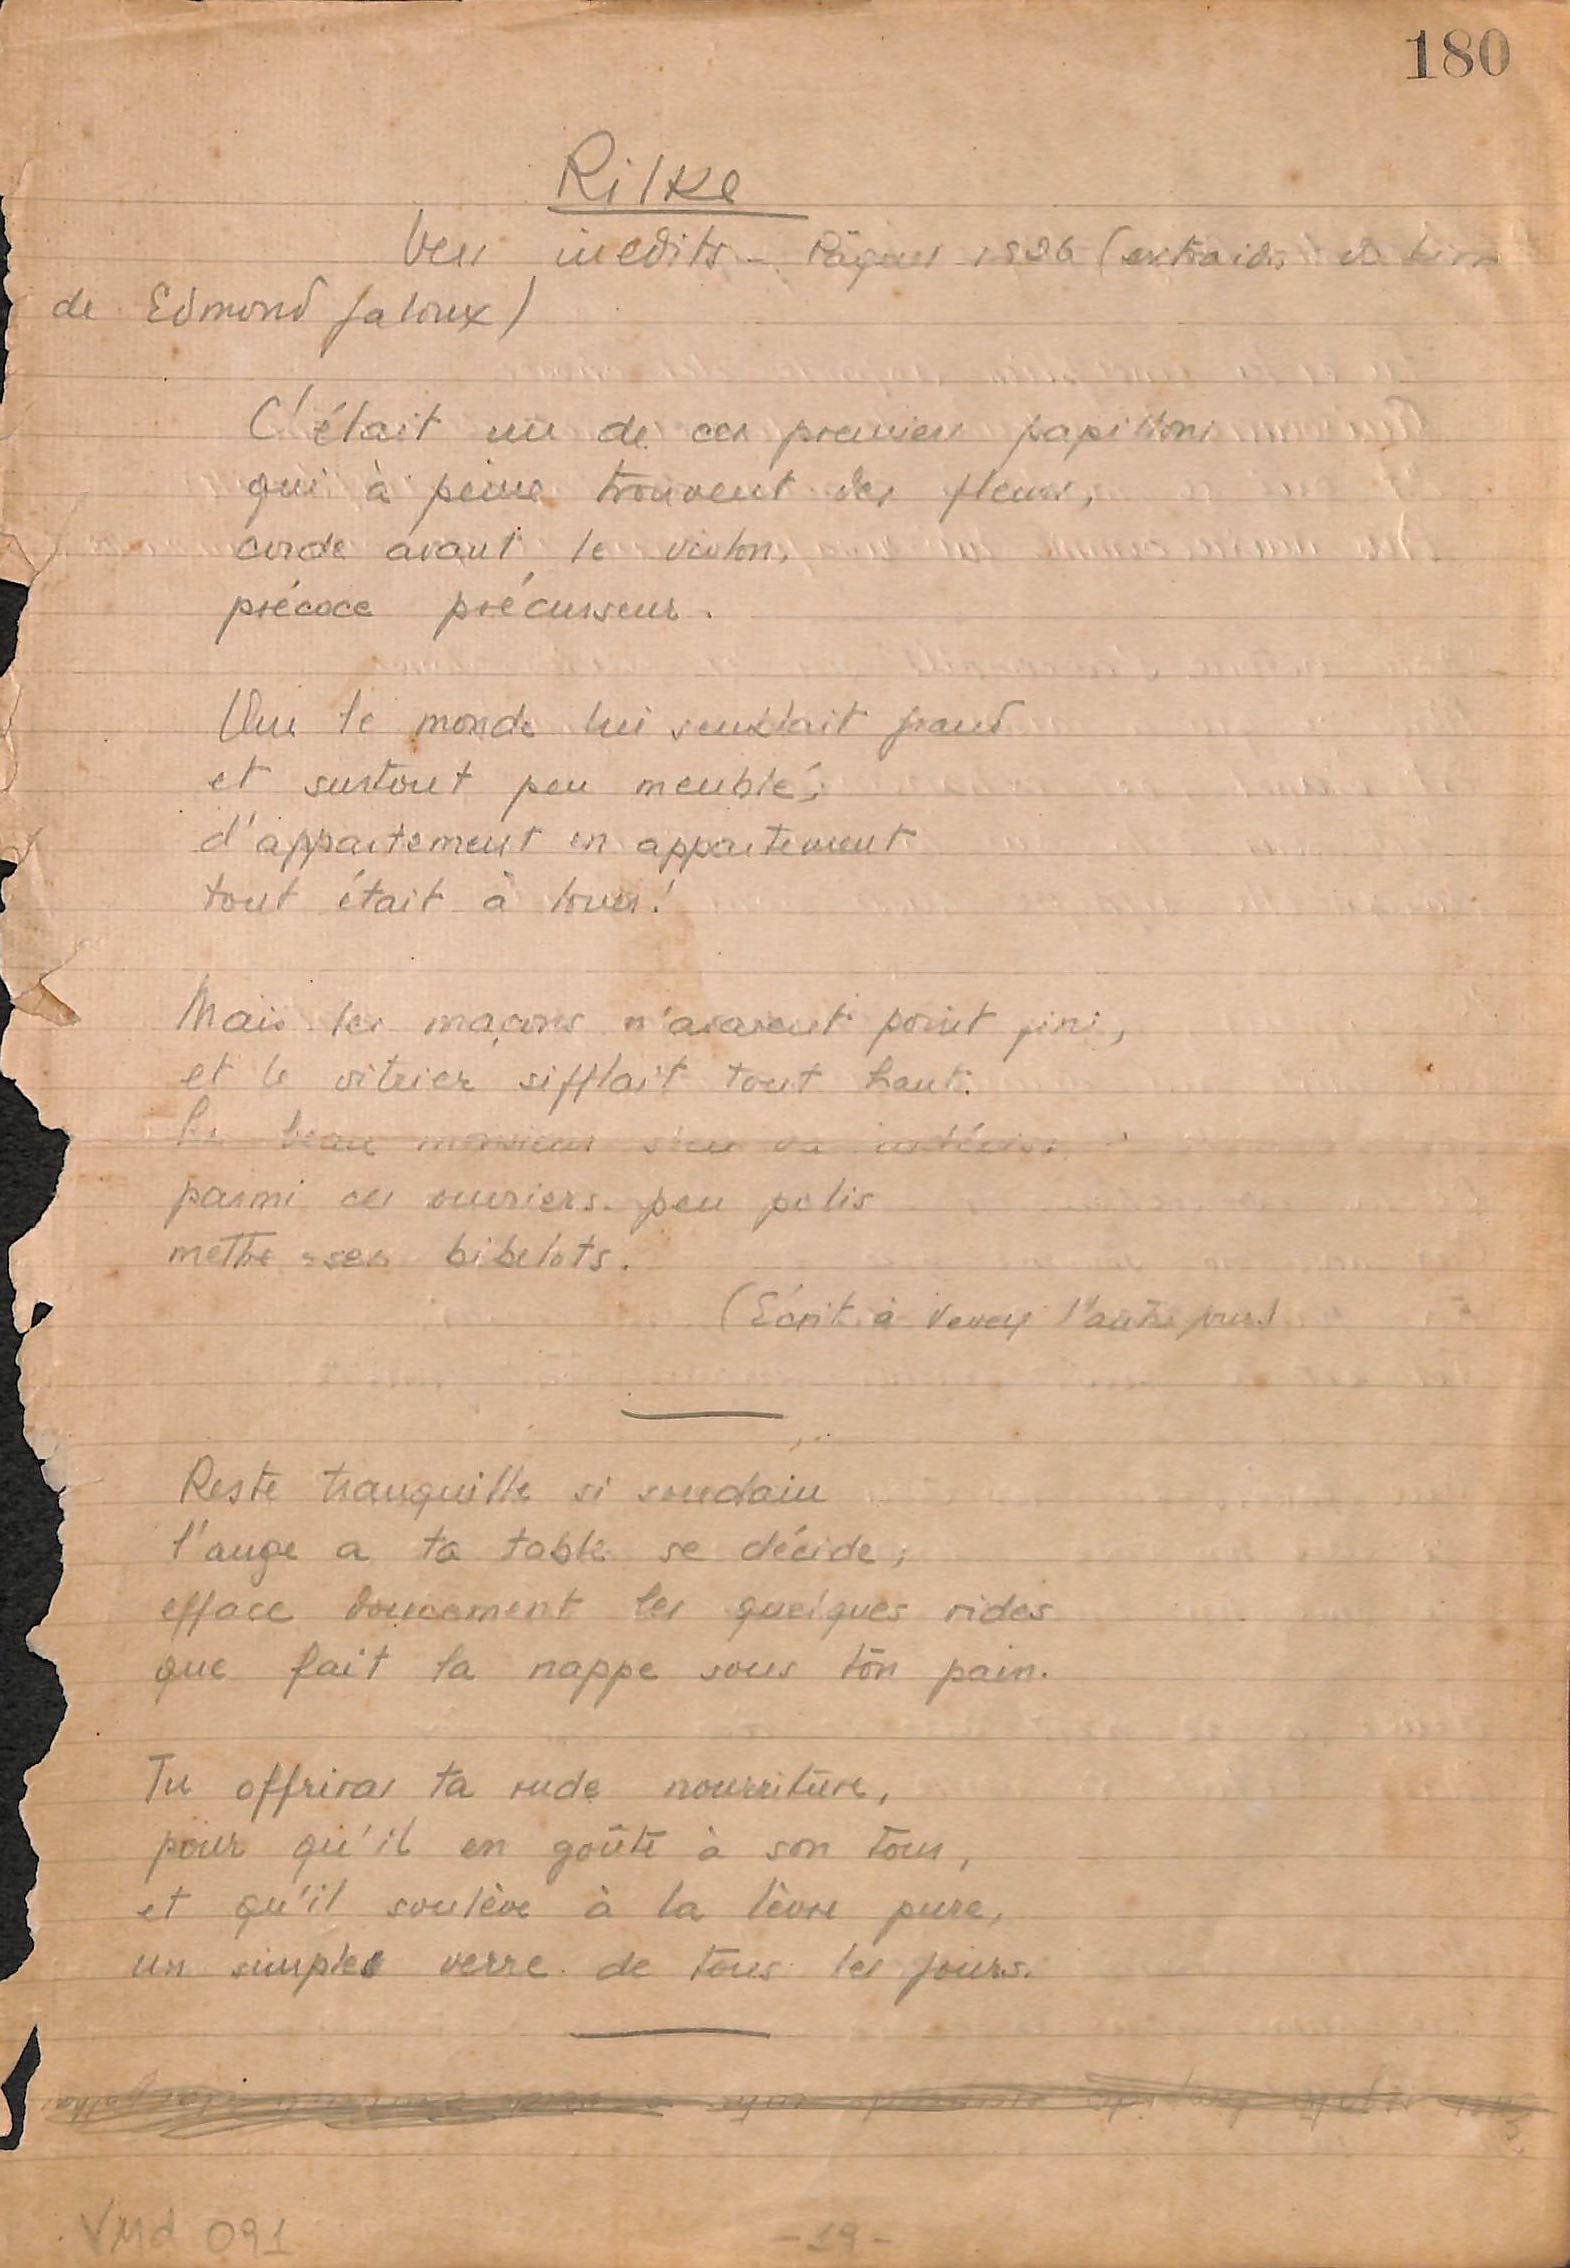 180
Rilke
Vers inedits - Pâques 1926 (extraits du livre
de Edmond Jaloux)
C'était un de ces premiers papillons
qui à peine trouvent des fleurs,
corde avant le violon,
précoce précurseur.
Que le monde lui semblait grand
et surtout peu meublé;
d'appartement en appartement
tout était à louer!
Mais les maçons n'avaient point fini,
et le vitrier sifflait tout haut.
Le beau monsieur s'en va
parmi ces ouriers peu polis
mettre ses bibelots.
(Ecrit à Vevey l'autre jour)
Reste tranquille si soudain
l'ange a ta table se décide;
efface doucement les quelques rides
que fait la nappe sous ton pain.
Tu offriras ta rude nourriture,
pour qu'il en goûte à son tour,
et qu'il soulève à la lèvre pure,
un simple verre de tous les jours.
VMd 091
- 19 -